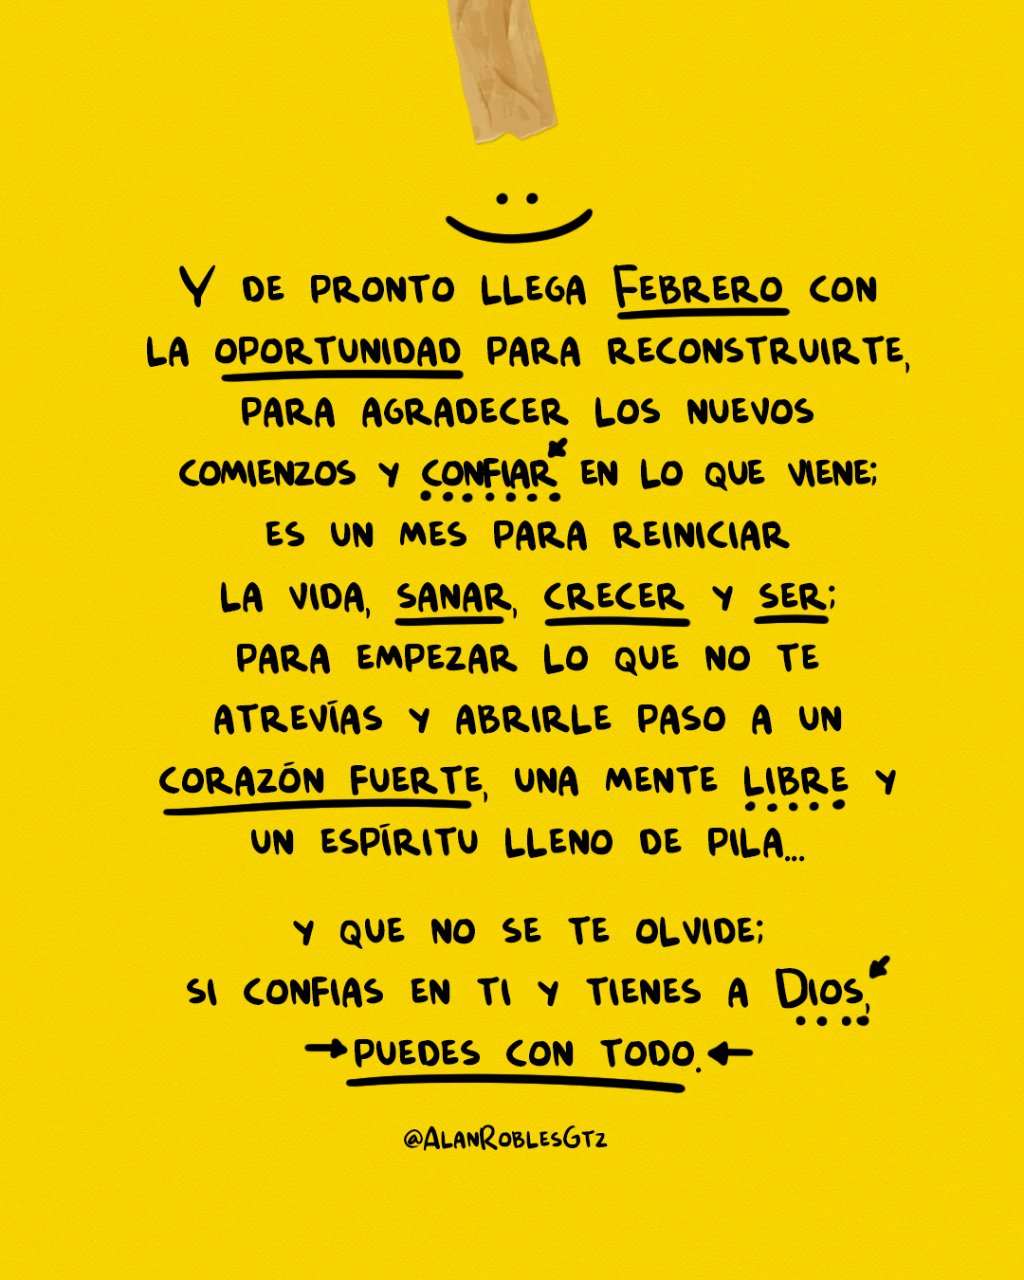 Y DE PRONTO LLEGA FEBRERO CON
LA OPORTUNIDAD PARA RECONSTRUIRTE,
PARA AGRADECER LOS NUEVOS
COMIENZOS Y CONFIAR EN LO QUE VIENE;
ES UN MES PARA REINICIAR
LA VIDA, SANAR, CRECER Y SER;
PARA EMPEZAR LO QUE NO TE
ATREVÍAS Y ABRIRLE PASO A UN
CORAZÓN FUERTE, UNA MENTE LIBRE Y
UN ESPÍRITU LLENO DE PILA...
Y QUE NO SE TE OLVIDE;
SI CONFIAS EN TI Y TIENES A DIOS,
PUEDES CON TODO.
@ALANROBLESGTZ